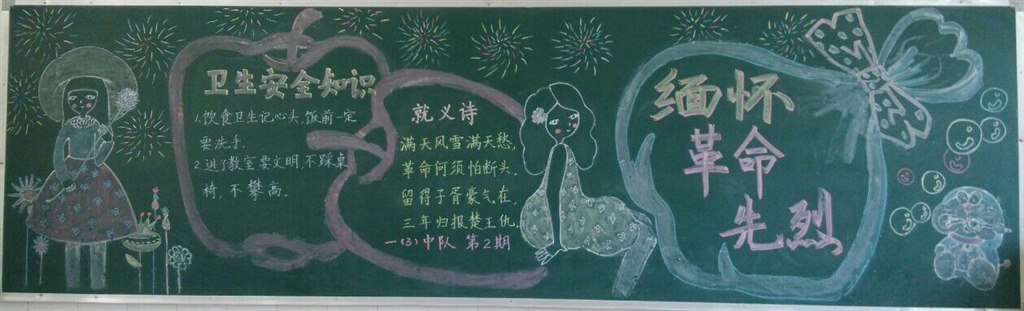 卫生安全知识
1.饮食卫生记心头,饭前一定
要洗手.
2.进了教室要文明,不踩桌
椅,不攀高.
就义诗
满天风雪满天愁,
革命何须怕断头.
留得子胥豪气在,
三年归报楚王仇.
一(3)中队 第2期
缅怀
革命
先烈